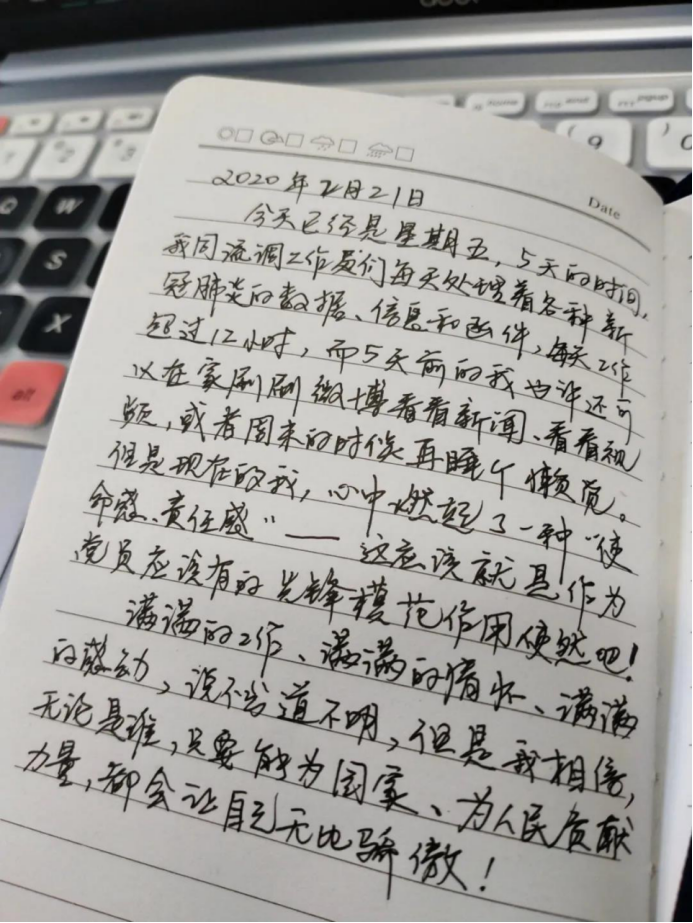 Date
2020年2月21日
今天已经是星期五，5天的时间，
我同流调工作友们每天处理着各种新
冠肺炎的数据、信息和函件，每天工作
超过12小时，而5天前的我也许还可
以在家刷刷微博看看新闻、看看视
频，或者周末的时候再睡个懒觉。
但是现在的我，心中燃起了一种“使
命感、责任感”——这应该就是作为
党员应该有的先锋模范作用使然吧！
满满的工作、满满的情怀、满满
的感动，说不出道不明，但是我相信，
无论是谁，只要能为国家、为人民贡献
力量，都会让自己无比骄傲！
Q
W
S
X
alt
2
3
9
0
home